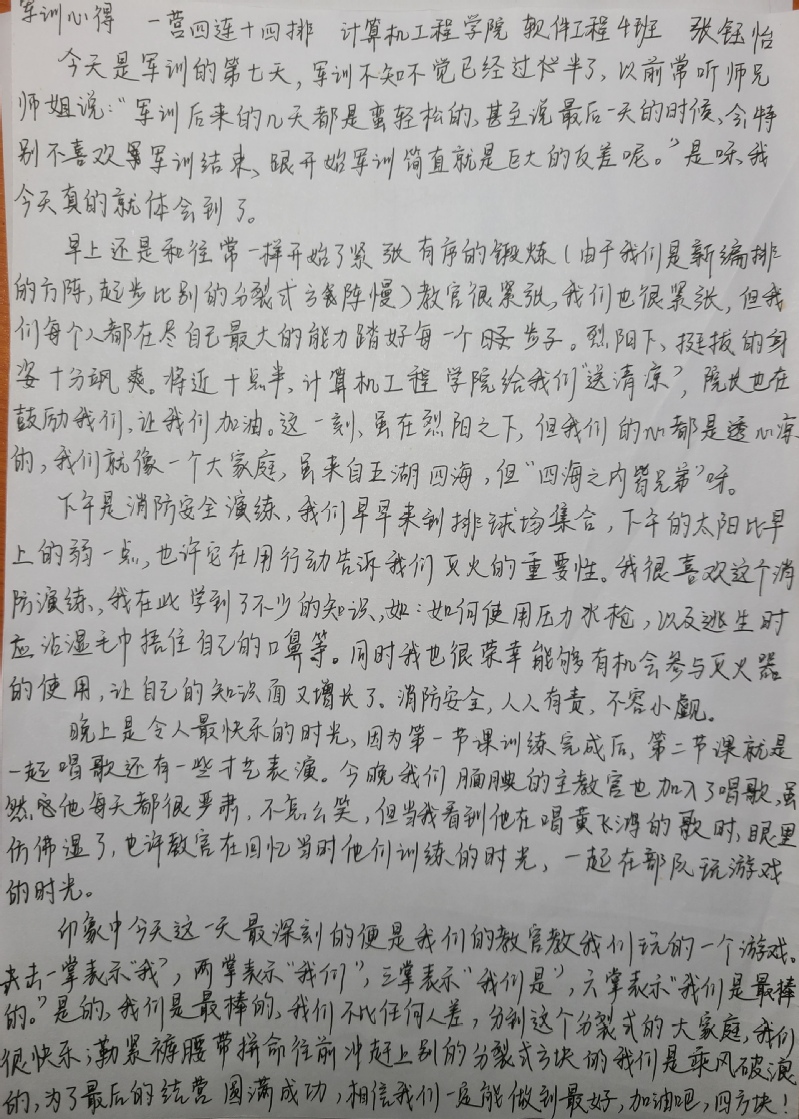 军训心得 一营四连十四排 计算机工程学院 软件工程4班 张钰怡
今天是军训的第七天，军训不知不觉已经过半了，以前常听师兄
师姐说：“军训后来的几天都是蛮轻松的，甚至说最后一天的时候，会特
别不喜欢军训结束，跟开始军训简直就是巨大的反差呢。”是呀，我
今天真的就体会到了。
早上还是和往常一样开始了紧张有序的锻炼（由于我们是新编排
的方阵，起步比别的分裂式方阵慢）教官很紧张，我们也很紧张，但我
们每个人都在尽自己最大的能力踏好每一个步子。烈阳下，挺拔的身
姿十分飒爽。将近十点半，计算机工程学院给我们“送清凉”，院长也在
鼓励我们，让我们加油。这一刻，虽在烈阳之下，但我们的心都是透心凉
的，我们就像一个大家庭，虽来自五湖四海，但“四海之内皆兄弟”呀。
下午是消防安全演练，我们早早来到排球场集合，下午的太阳比早
上的弱一点，也许它在用行动告诉我们灭火的重要性。我很喜欢这个消
防演练，我在此学到了不少的知识，如：如何使用压力水枪，以及逃生时
应沾湿毛巾捂住自己的口鼻等。同时我也很荣幸能够有机会参与灭火器
的使用，让自己的知识面又增长了。消防安全，人人有责，不容小觑。
晚上是令人最快乐的时光，因为第一节课训练完成后，第二节课就是
一起唱歌还有一些才艺表演。今晚我们腼腆的主教官也加入了唱歌，虽
然他每天都很严肃，不怎么笑，但当我看到他在唱黄飞鸿的歌时，眼里
仿佛湿了，也许教官在回忆当时他们训练的时光，一起在部队玩游戏
的时光。
印象中今天这一天最深刻的便是我们的教官教我们玩的一个游戏。
击一掌表示“我”，两掌表示“我们”，三掌表示“我们是”，六掌表示“我们是最棒
的。”是的，我们是最棒的，我们不比任何人差，分到这个分裂式的大家庭，我们
很快乐；勒紧裤腰带拼命往前冲赶上别的分裂式方块的我们是乘风破浪
的，为了最后的结营圆满成功，相信我们一定能做到最好，加油吧，四方块！